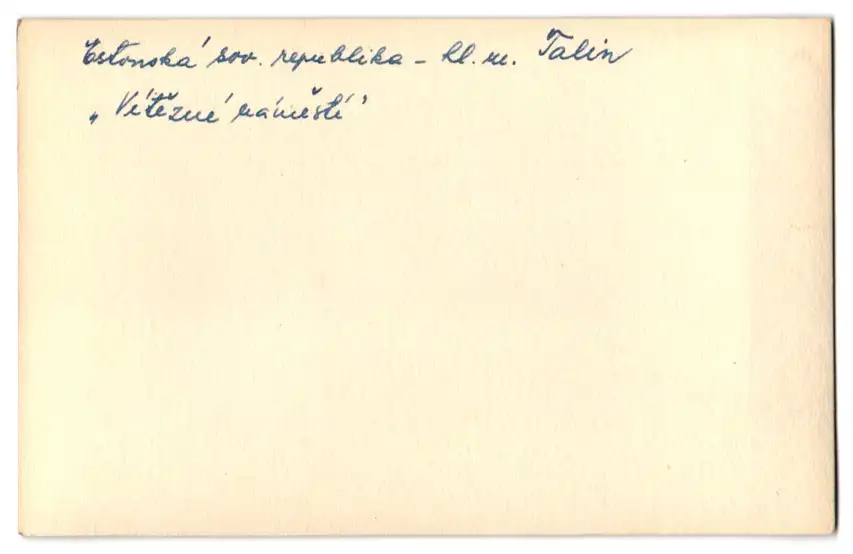 Estonská sov. republika – hl. m. Talin
„Vítězné náměstí"